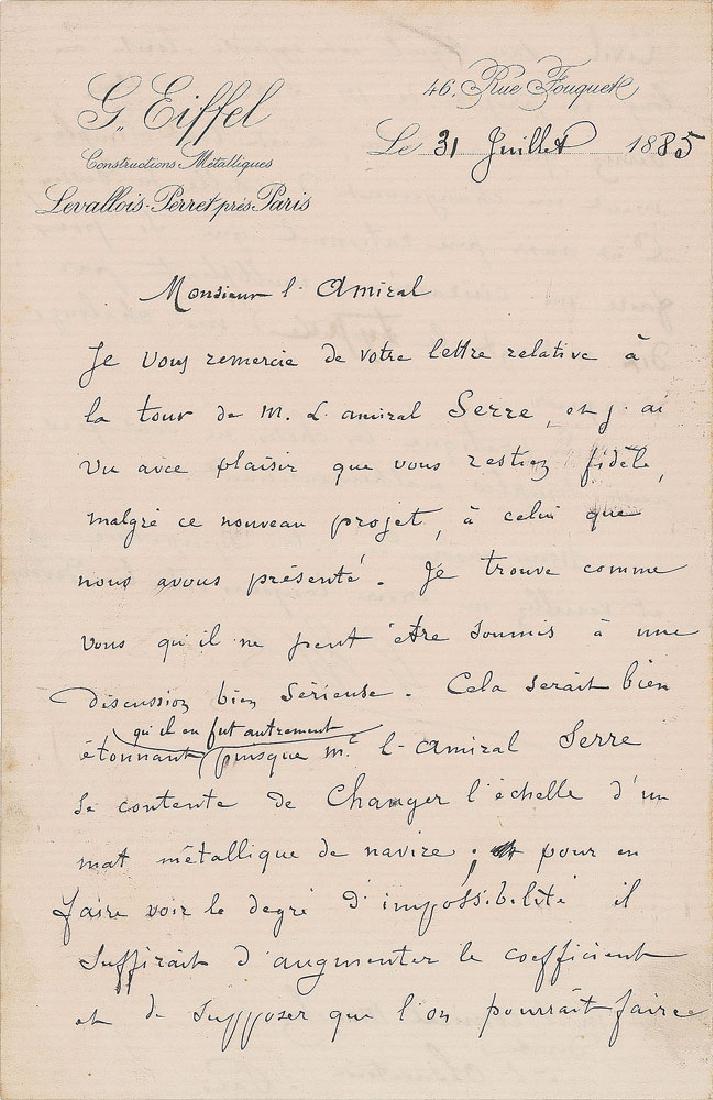 G. Eiffel
Constructions Métalliques
Levallois-Perret près Paris
46, Rue Fouquet
Le 31 Juillet 1885
Monsieur l'Amiral
Je vous remercie de votre lettre relative à
la tour de M. L'amiral Serre, et j'ai
vu avec plaisir que vous restiez fidèle,
malgré ce nouveau projet, à celui que
nous avons présenté. Je trouve comme
vous qu'il ne peut être soumis à une
discussion bien sérieuse. Cela serait bien
qu'il en fut autrement
étonnant puisque Mr l'amiral Serre
se contente de changer l'échelle d'un
mat métallique de navire ; pour en
faire voir le degré d'impossibilité il
suffirait d'augmenter le coefficient
et de supposer que l'on pourrait faire